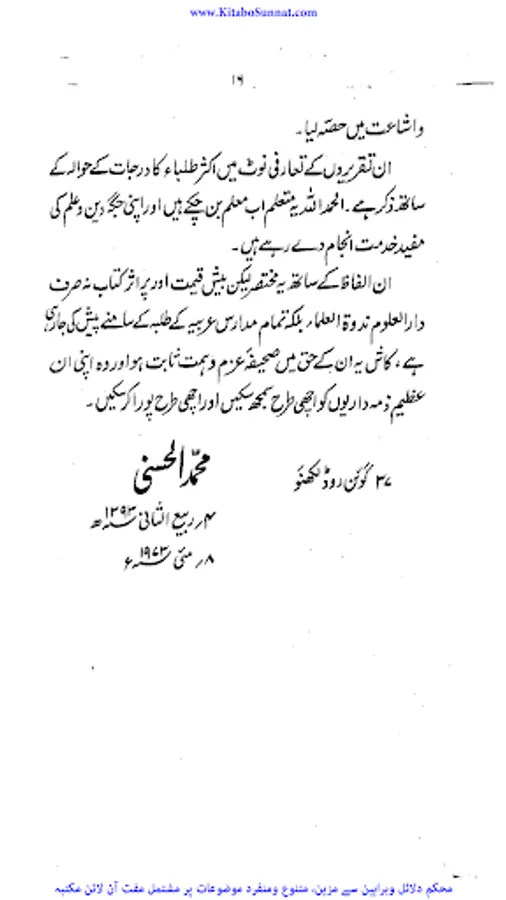 www.KitaboSunnat.com
۱۶
واشاعت میں حصّہ لیا۔
ان تقریروں کے تعارفی نوٹ میں اکثر طلباء کا درجات کے حوالہ کے
ساتھ ذکر ہے۔ الحمد اللہ یہ متعلم اب معلم بن چکے ہیں اور اپنی جگہ دین و علم کی
مفید خدمت انجام دے رہے ہیں۔
ان الفاظ کے ساتھ یہ مختصر لیکن بیش قیمت اور پر اثر کتاب نہ صرف
دارالعلوم ندوۃ العلماء بلکہ تمام مدارس عربیہ کے طلبہ کے سامنے پیش کی جارہی
ہے، کاش یہ ان کے حق میں صحیفۂ عزم و ہمت ثابت ہو اور وہ اپنی ان
عظیم ذمہ داریوں کو اچھی طرح سمجھ سکیں اور اچھی طرح پورا کر سکیں۔
۳۷ گوئن روڈ لکھنؤ
محمّد الحسنی
۴؍ ربیع الثانی ۱۳۹۳ھ
۸؍ مئی ۱۹۷۳ء
محکم دلائل وبراہین سے مزین، متنوع ومنفرد موضوعات پر مشتمل مفت آن لائن مکتبہ